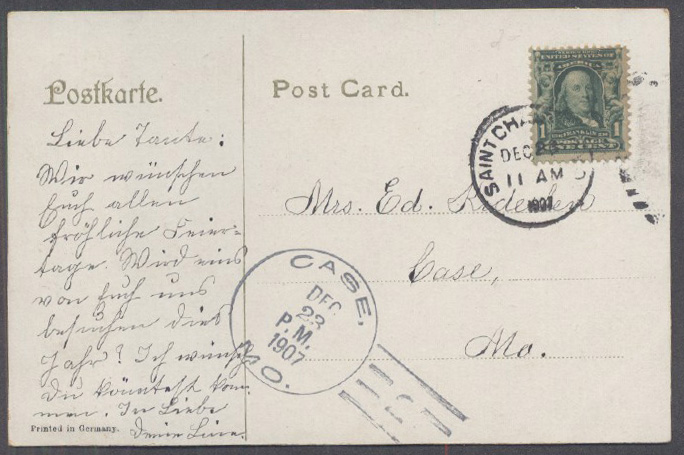 Postkarte.
Post Card.
Liebe Tante:
Wir wünschen
Euch allen
fröhliche Feier-
tage. Wird eins
von Euch uns
besuchen dies
Jahr? Ich wünsch
Du könntest kom-
men. In Liebe
Deine Line.
Printed in Germany.
UNITED STATES OF
AMERICA
1 FRANKLIN 1
POSTAGE
ONE CENT
SAINT CHA
DEC
11 AM
1907
Mrs. Ed.
Case,
Mo.
CASE, MO.
DEC
23
P.M.
1907